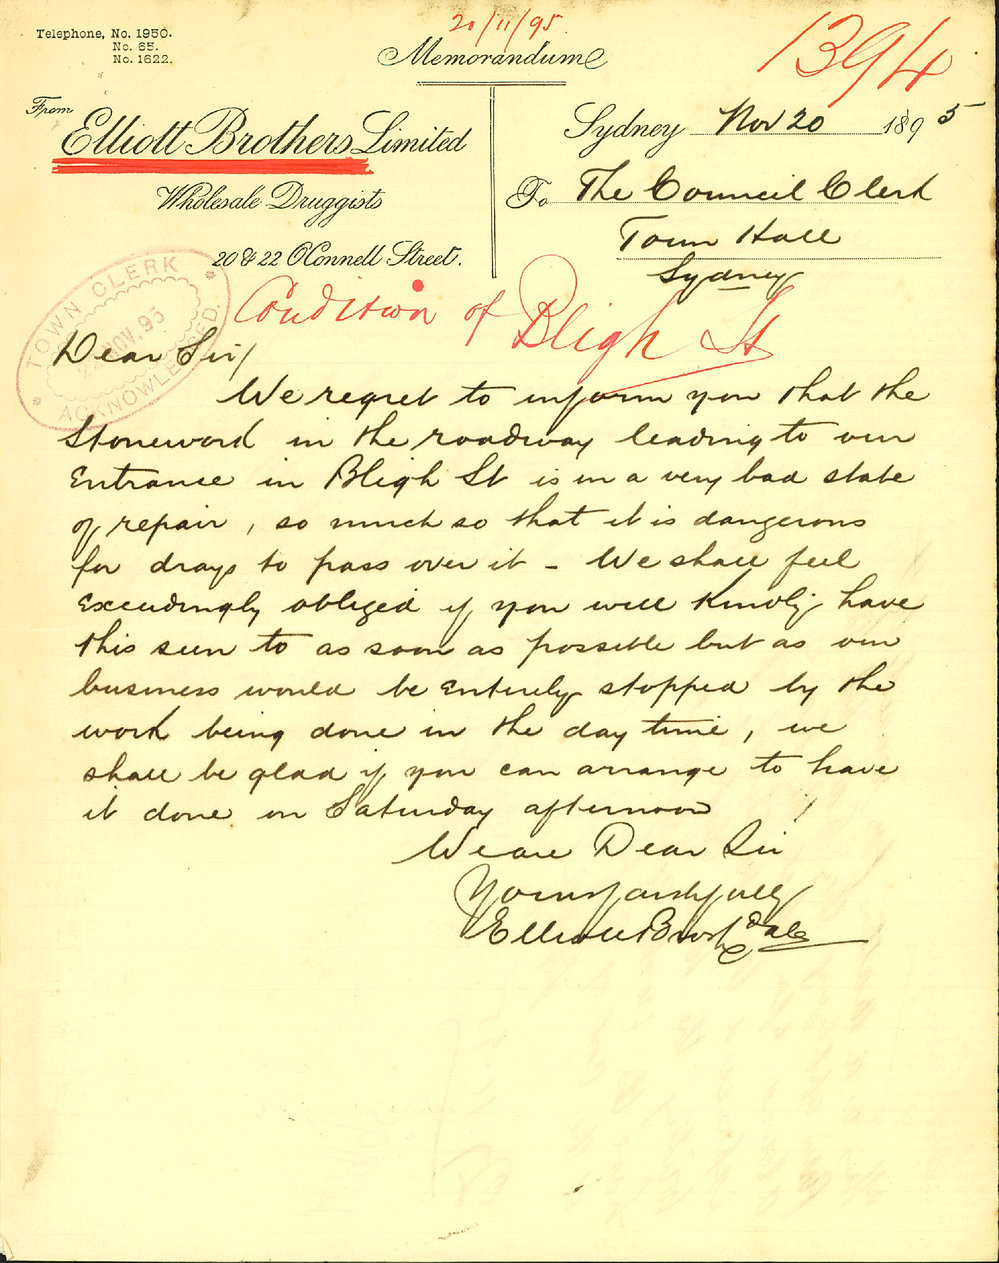 20/11/95
1394
Telephone, No. 1950.
No. 65.
No. 1622.
Memorandum
From
Elliott Brothers Limited
Wholesale Druggists
20 & 22 O'Connell Street.
Sydney Nov 20 1895
To The Council Clerk
Town Hall
Sydney
TOWN CLERK
NOV. 95
ACKNOWLEDGED.
Condition of Bligh St
Dear Sir/
We regret to inform you that the
Stoneword in the roadway leading to our
Entrance in Bligh St is in a very bad state
of repair, so much so that it is dangerous
for drays to pass over it - We shall feel
exceedingly obliged if you will kindly have
this seen to as soon as possible but as our
business would be entirely stopped by the
work being done in the day time, we
shall be glad if you can arrange to have
it done on Saturday afternoon
We are Dear Sir
Yours faithfully
Elliott Bros